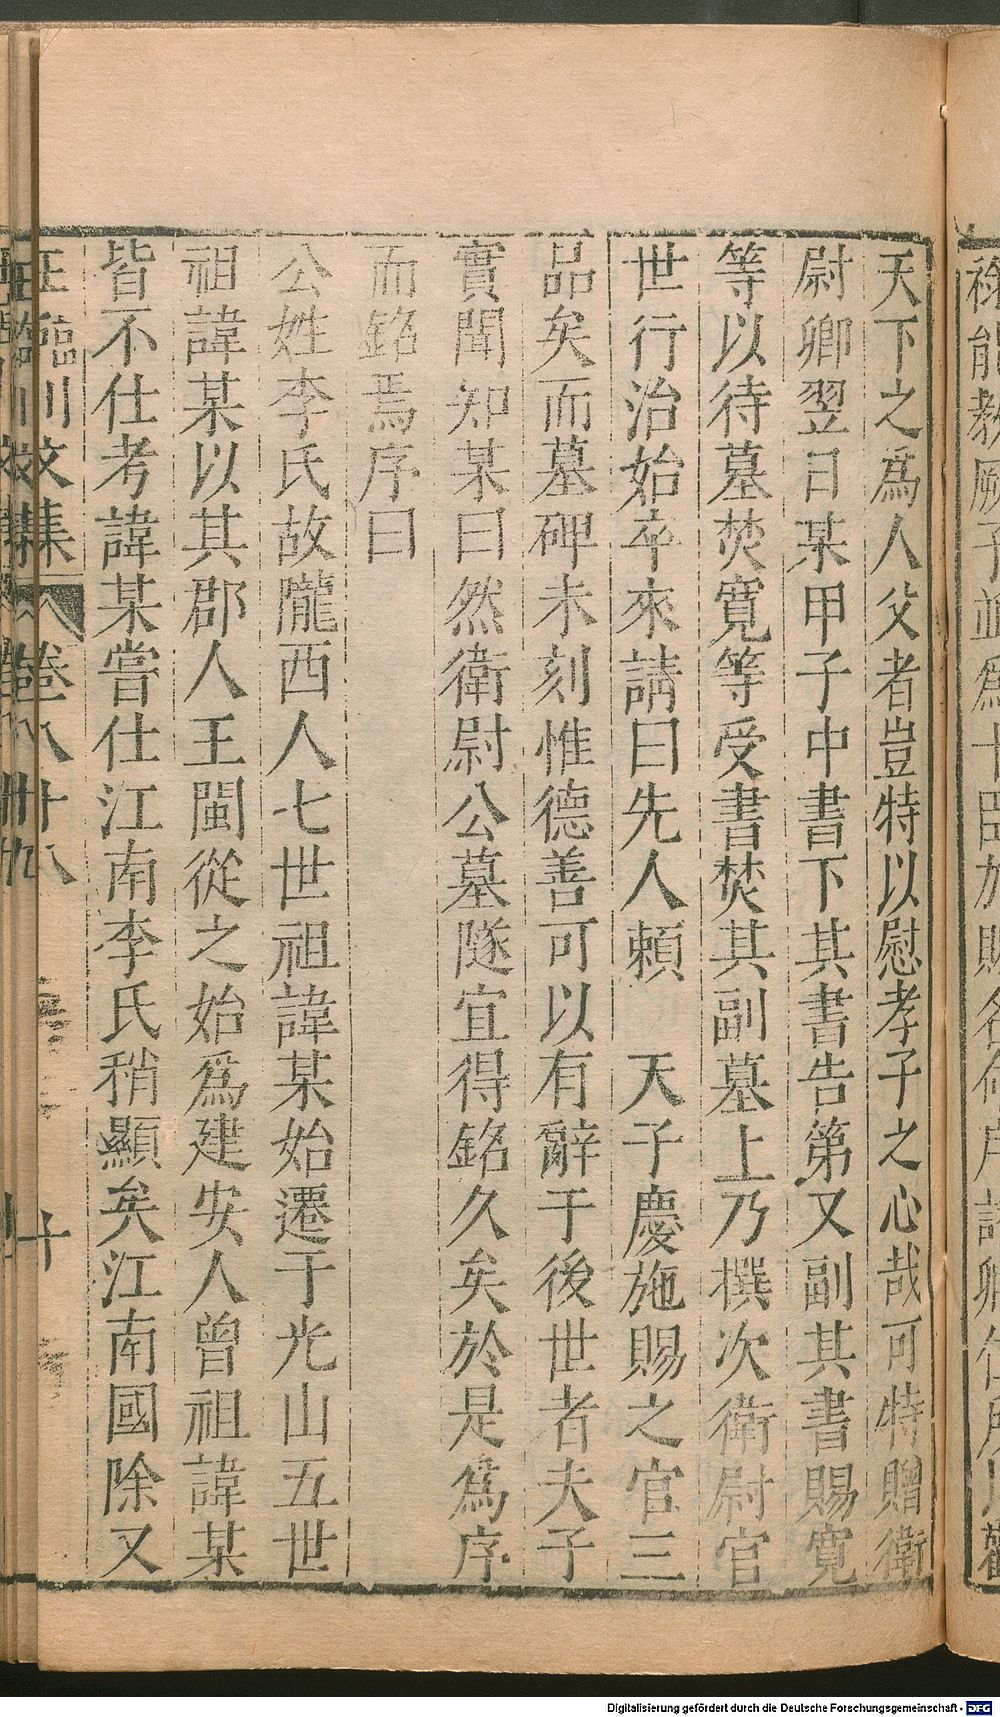 天下之爲人父者豈特以慰孝子之心哉可特贈衛
尉卿翌日某甲子中書下其書告第又副其書賜寬
等以待墓焚寬等受書焚其副墓上乃撰次衛尉官
世行治始卒來請曰先人賴　天子慶施賜之官三
品矣而墓碑未刻惟德善可以有辭于後世者夫子
實聞知某曰然衛尉公墓隧宜得銘久矣於是爲序
而銘焉序曰
公姓李氏故隴西人七世祖諱某始遷于光山五世
祖諱某以其郡人王閩從之始爲建安人曾祖諱某
皆不仕考諱某嘗仕江南李氏稍顯矣江南國除又
王臨川文集 卷八十八 十
Digitalisierung gefördert durch die Deutsche Forschungsgemeinschaft - DFG